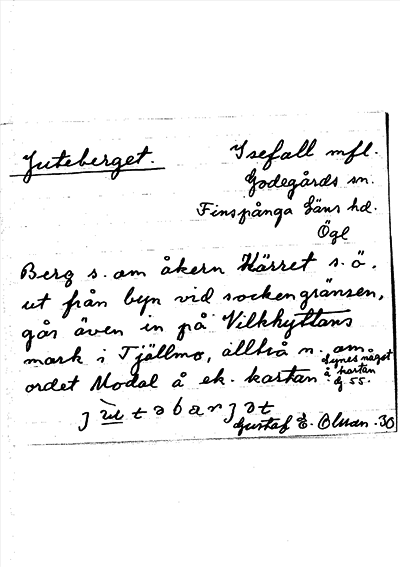 Juteberget.
Isefall mfl.
Godegårds sn.
Finspånga läns hd.
Ögl
Berg s. om åkern Kärret s.ö.
ut från byn vid sockengränsen,
går även in på Vilkhyttans
mark i Tjällmo, alltså n. om
ordet Modal å ek. kartan.
synes något
å kartan
bl. 55.
Gustaf E. Olsson. 30